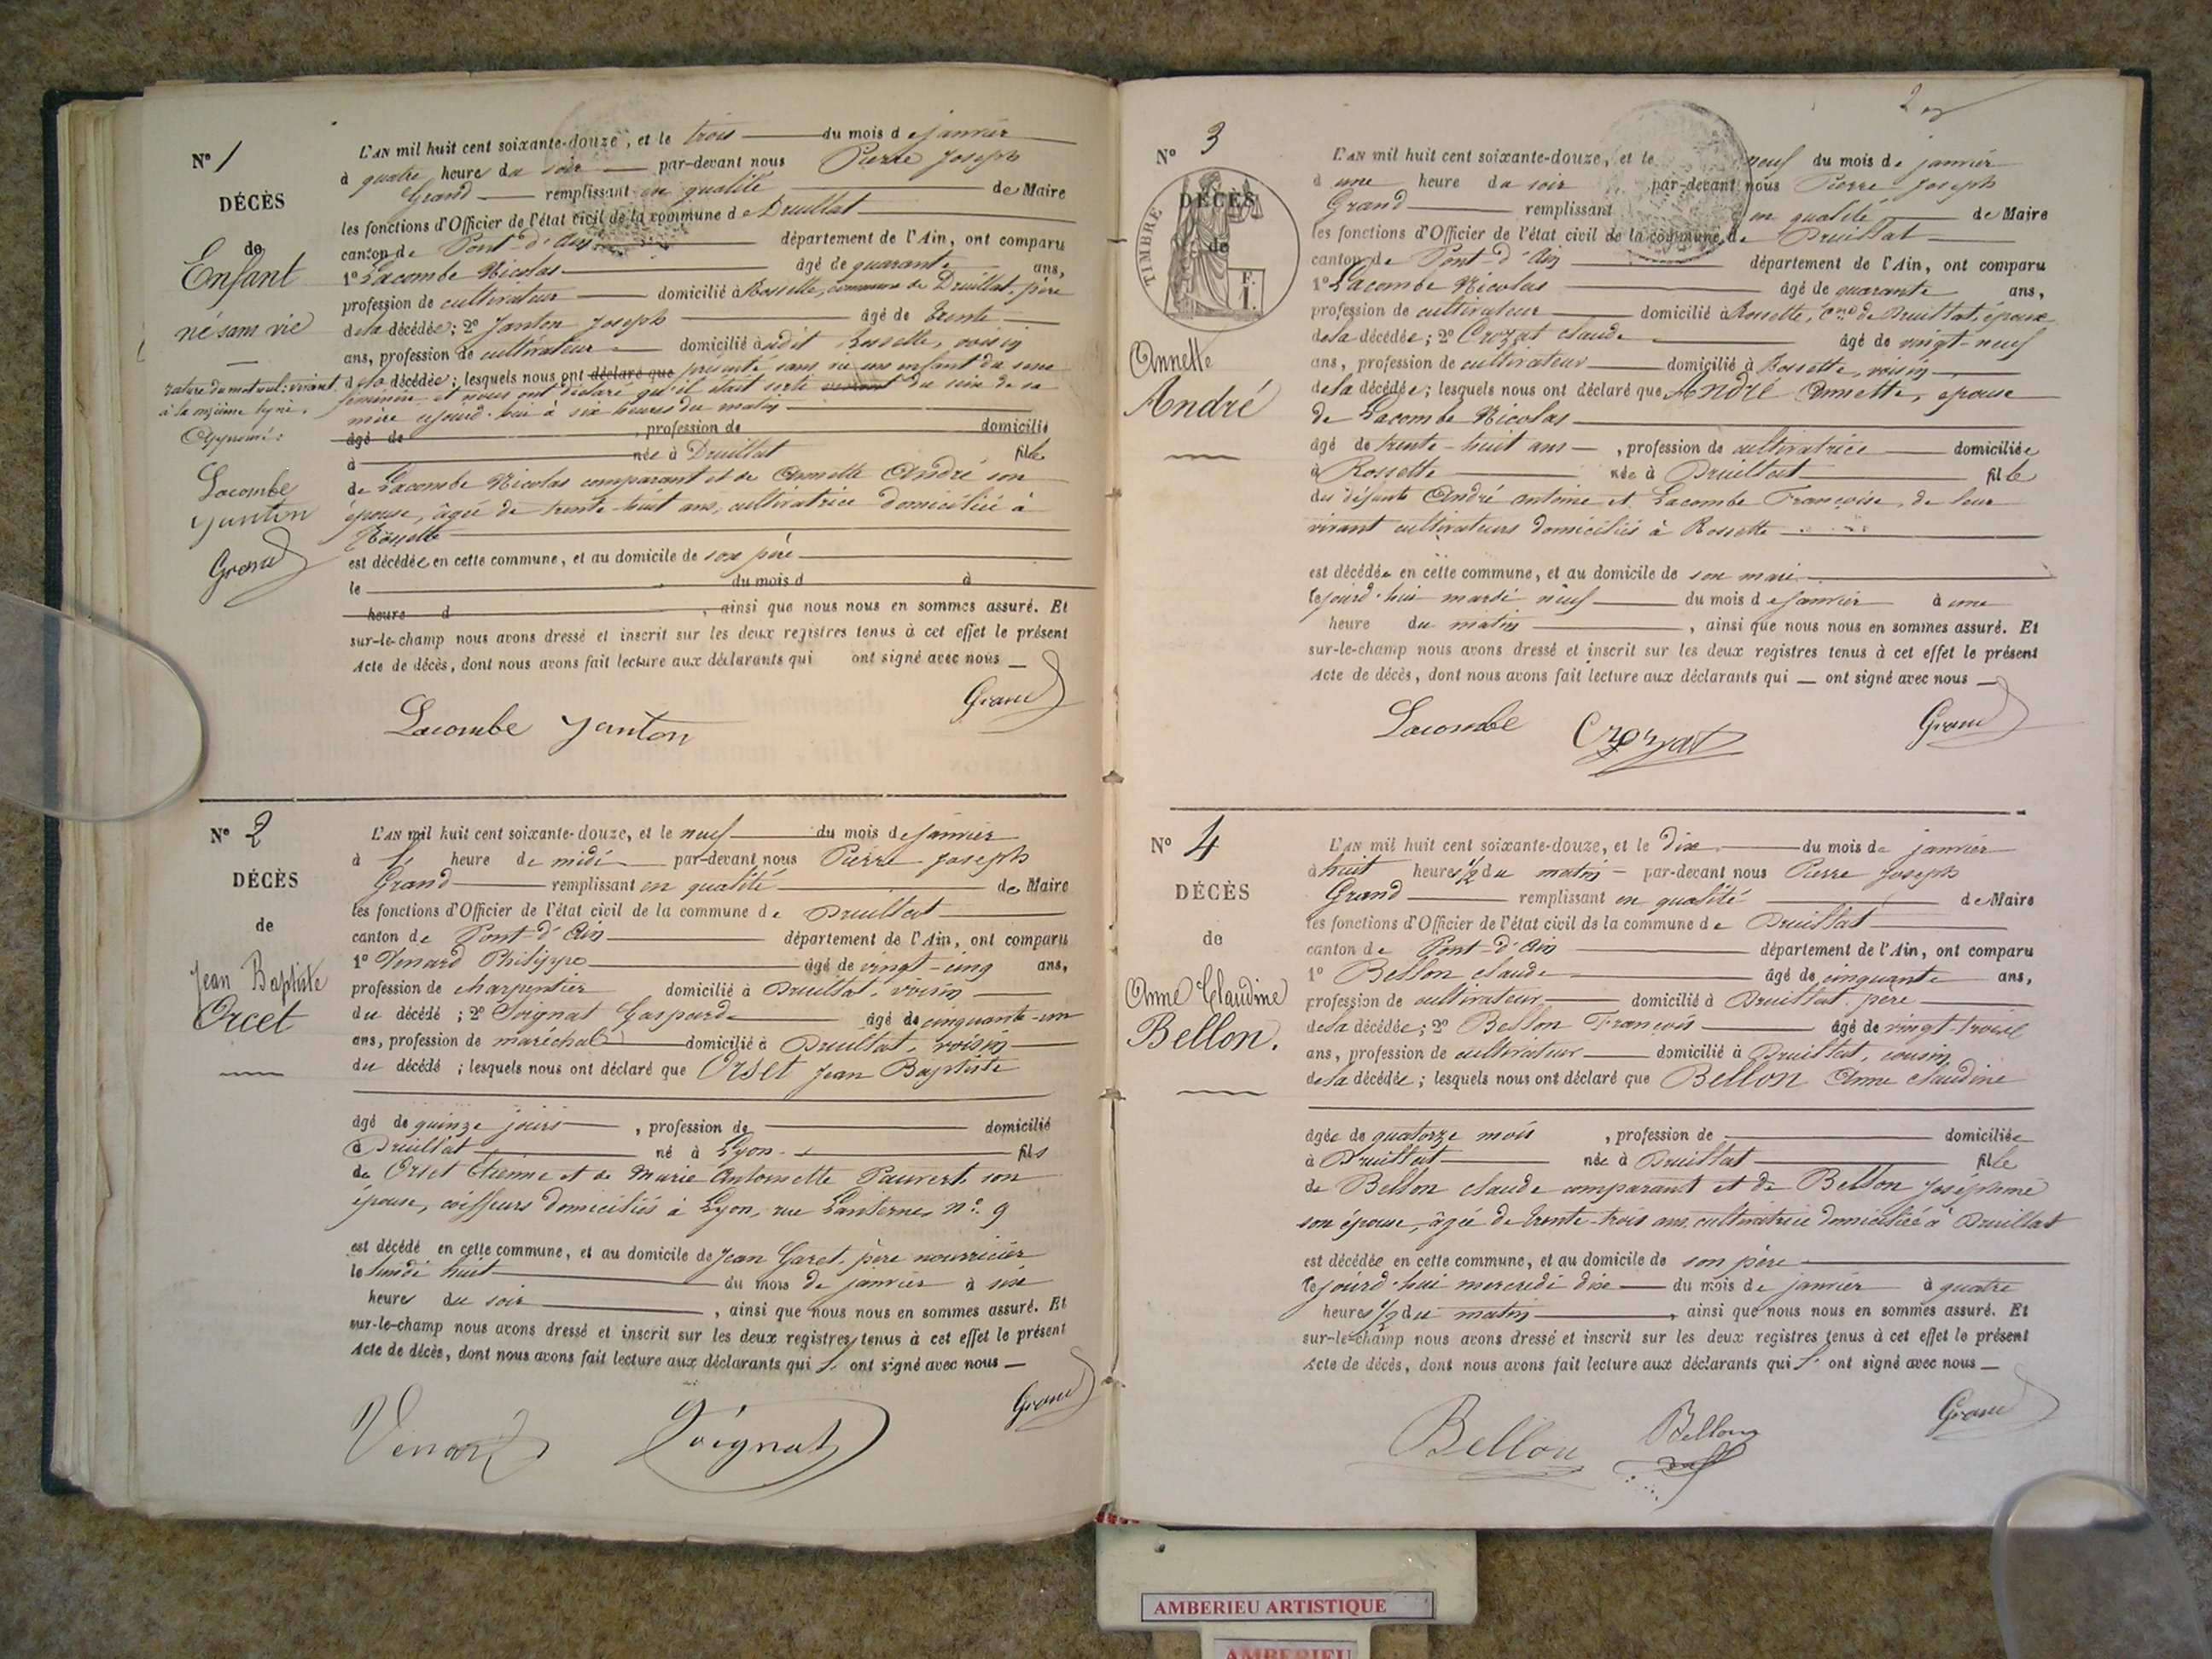 N° 1
DÉCÈS
de
Enfant
né sans vie
rature du mot nul: vivant
à la onzième ligne.
Approuvé:
Lacombe
Janton
Grand
L'AN mil huit cent soixante-douze, et le trois du mois de janvier
à quatre heure du soir par-devant nous Pierre Joseph
Grand remplissant en qualité de Maire
les fonctions d'Officier de l'état civil de la commune de Druillat
canton de Pont-d'Ain département de l'Ain, ont comparu
1° Lacombe Nicolas âgé de quarante ans,
profession de cultivateur domicilié à Rossette, commune de Druillat, père
de la décédée; 2° Janton Joseph âgé de trente
ans, profession de cultivateur domicilié à udit Rossette, voisin
de la décédée; lesquels nous ont déclaré que présenté sans vie un enfant du sexe
féminin et nous ont déclaré qu'il était sorti vivant du sein de sa
mère cejourd'hui à six heures du matin
âgé de , profession de domicilié
à née à Druillat fille
de Lacombe Nicolas comparant et de Annette André son
épouse, âgée de trente-huit ans, cultivatrice domiciliée à
Rossette
est décédée en cette commune, et au domicile de son père
le du mois d à
heure d , ainsi que nous nous en sommes assuré. Et
sur-le-champ nous avons dressé et inscrit sur les deux registres tenus à cet effet le présent
Acte de décès, dont nous avons fait lecture aux déclarants qui ont signé avec nous
Lacombe Janton Grand
N° 2
DÉCÈS
de
Jean Baptiste
Orcet
L'AN mil huit cent soixante-douze, et le neuf du mois de janvier
à 1 heure de midi par-devant nous Pierre Joseph
Grand remplissant en qualité de Maire
les fonctions d'Officier de l'état civil de la commune de Druillat
canton de Pont-d'Ain département de l'Ain, ont comparu
1° Venard Philippe âgé de vingt-cinq ans,
profession de charpentier domicilié à Druillat, voisin
du décédé; 2° Soignat Gaspard âgé de cinquante-un
ans, profession de maréchal domicilié à Druillat, voisin
du décédé; lesquels nous ont déclaré que Orset Jean Baptiste
âgé de quinze jours, profession de domicilié
à Druillat né à Lyon fils
de Orset Etienne et de Marie Antoinette Pauvert son
épouse, coiffeurs domiciliés à Lyon, rue Lanterne, n°. 9
est décédé en cette commune, et au domicile de Jean Garet, père nourricier
le lundi huit du mois de janvier à six
heures du soir , ainsi que nous nous en sommes assuré. Et
sur-le-champ nous avons dressé et inscrit sur les deux registres tenus à cet effet le présent
Acte de décès, dont nous avons fait lecture aux déclarants qui ont signé avec nous
Venard Soignat Grand
N° 3
TIMBRE
F.
1.
DÉCÈS
de
Annette
André
L'AN mil huit cent soixante-douze, et le neuf du mois de janvier
à une heure du soir par-devant nous Pierre Joseph
Grand remplissant en qualité de Maire
les fonctions d'Officier de l'état civil de la commune de Druillat
canton de Pont-d'Ain département de l'Ain, ont comparu
1° Lacombe Nicolas âgé de quarante ans,
profession de cultivateur domicilié à Rossette, cne de Druillat, époux
de la décédée; 2° Crozat Claude âgé de vingt-neuf
ans, profession de cultivateur domicilié à Rossette, voisin
de la décédée; lesquels nous ont déclaré que André Annette, épouse
de Lacombe Nicolas
âgé de trente-huit ans, profession de cultivatrice domiciliée
à Rossette née à Druillat fille
des défunts André Antoine et Lacombe Françoise, de leur
vivant cultivateurs domiciliés à Rossette
est décédée en cette commune, et au domicile de son mari
lejourd'hui mardi neuf du mois de janvier à une
heure du matin , ainsi que nous nous en sommes assuré. Et
sur-le-champ nous avons dressé et inscrit sur les deux registres tenus à cet effet le présent
Acte de décès, dont nous avons fait lecture aux déclarants qui ont signé avec nous
Lacombe Crozat Grand
N° 4
DÉCÈS
de
Anne Claudine
Bellon.
L'AN mil huit cent soixante-douze, et le dix du mois de janvier
à huit heures 1/2 du matin par-devant nous Pierre Joseph
Grand remplissant en qualité de Maire
les fonctions d'Officier de l'état civil de la commune de Druillat
canton de Pont-d'Ain département de l'Ain, ont comparu
1° Bellon Claude âgé de cinquante ans,
profession de cultivateur domicilié à Druillat, père
de la décédée; 2° Bellon François âgé de vingt-trois
ans, profession de cultivateur domicilié à Druillat, cousin
de la décédée; lesquels nous ont déclaré que Bellon Anne Claudine
âgée de quatorze mois , profession de domiciliée
à Druillat née à Druillat fille
de Bellon Claude comparant et de Bellon Joséphine
son épouse, âgée de trente-trois ans, cultivatrice domiciliée à Druillat
est décédée en cette commune, et au domicile de son père
lejourd'hui mercredi dix du mois de janvier à quatre
heures 1/2 du matin , ainsi que nous nous en sommes assuré. Et
sur-le-champ nous avons dressé et inscrit sur les deux registres tenus à cet effet le présent
Acte de décès, dont nous avons fait lecture aux déclarants qui ont signé avec nous
Bellon Bellon Grand
AMBERIEU ARTISTIQUE
AMBERIEU